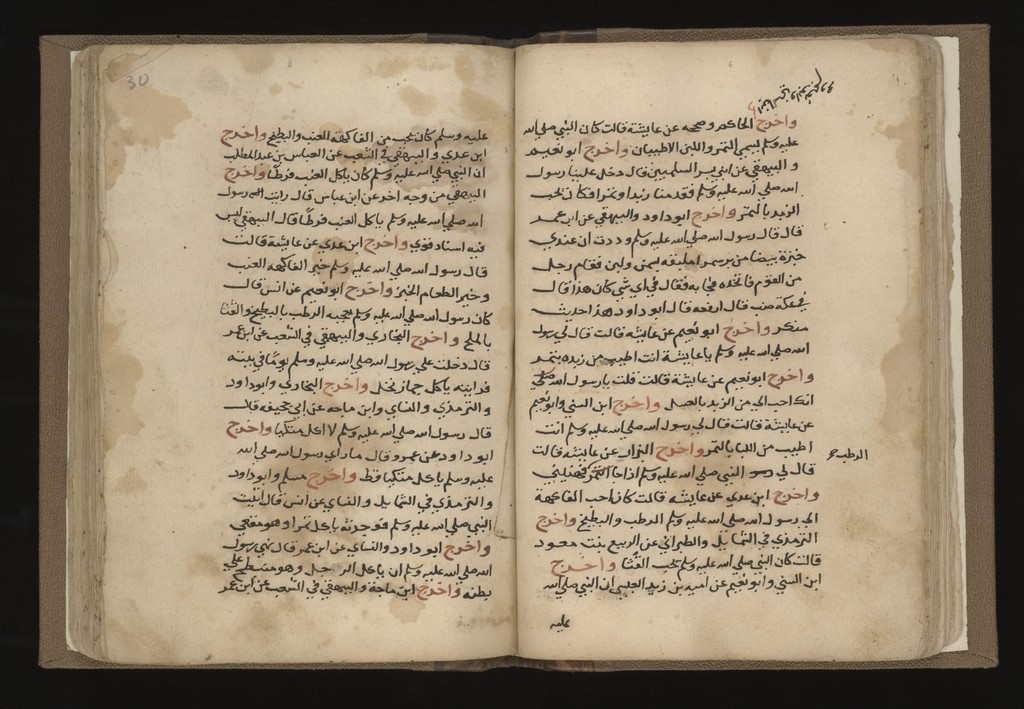 واخرج الحاكم وصححه عن عايشة قالت كان النبي صلي الله
عليه وسلم يسمي التمر واللبن الاطيبان واخرج ابو نعيم
و البيهقي عن ابني بسر السلميين قال دخل علينا رسول
الله صلي الله عليه وسلم فقدمنا زبدا وتمرا وكان يحب
الزبد بالتمر واخرج ابو داود والبيهقي عن ابن عمر
قال قال رسول الله صلي الله عليه وسلم وددت ان عندي
خبزة بيضا من بر سمرا ملبقة بسمن ولبن فقام رجل
من القوم فاتخذه فجا به فقال في اي شي كان هذا قال
في عكة ضب قال ارفعه قال ابو داود هذا حديث
منكر واخرج ابو نعيم عن عايشة قالت قال لي رسول
الله صلي الله عليه وسلم يا عايشة انت اطيب من زبده بتمر
واخرج ابو نعيم عن عايشة قالت قلت يا رسول الله
انك احب الي من الزبد بالعسل واخرج ابن السني وابو نعيم
عن عايشة قالت قال لي رسول الله صلي الله عليه وسلم انت
اطيب من اللبا بالتمر واخرج البزار عن عايشة قالت
قال لي النبي صلي الله عليه وسلم اذا جا فهنيني
الرطب
واخرج ابن عدي عن عايشة قالت كان احب الفاكهة
الي رسول الله صلي الله عليه وسلم الرطب والبطيخ واخرج
الترمذي في الشمايل والطبراني عن الربيع بنت معود
قالت كان النبي صلي الله عليه وسلم يحب القثا واخرج
ابن السني وابو نعيم عن امية بن زيد العبسي ان النبي صلي الله
عليه
30
عليه وسلم كان يحب من الفاكهة العنب والبطيخ واخرج
ابن عدي والبيهقي في الشعب عن العباس بن عبد المطلب
ان النبي صلي الله عليه وسلم كان ياكل العنب خرطا واخرج
البيهقي من وجه اخر عن ابن عباس قال رايت رسول
الله صلي الله عليه وسلم ياكل العنب خرطا قال البيهقي ليس
فيه اسناد قوي واخرج ابن عدي عن عايشة قالت
قال رسول الله صلي الله عليه وسلم خير الفاكهة العنب
وخير الطعام الخبز واخرج ابو نعيم عن انس قال
كان رسول الله صلي الله عليه وسلم يعجبه الرطب بالبطيخ والقثا
بالملح واخرج البخاري والبيهقي في الشعب عن ابن عمر
قال دخلت علي رسول الله صلي الله عليه وسلم يوما في بيته
فرايته ياكل جمار نخل واخرج البخاري وابو داود
و الترمذي والنساي وابن ماجه عن ابي جحيفه قال
قال رسول الله صلي الله عليه وسلم لا اكل متكيا واخرج
ابو داود عن عمرو قال ما راي رسول الله صلي الله
عليه وسلم ياكل متكيا قط واخرج مسلم وابو داود
و الترمذي في الشمايل والنساي عن انس قال اتيت
النبي صلي الله عليه وسلم فوجدته ياكل تمرا وهو مقعي
واخرج ابو داود والنساي عن ابن عمر قال نهي رسول
الله صلي الله عليه وسلم ان ياكل الرجل وهو منبطح علي
بطنه واخرج ابن ماجة والبيهقي في الشعب عن ابن عمر